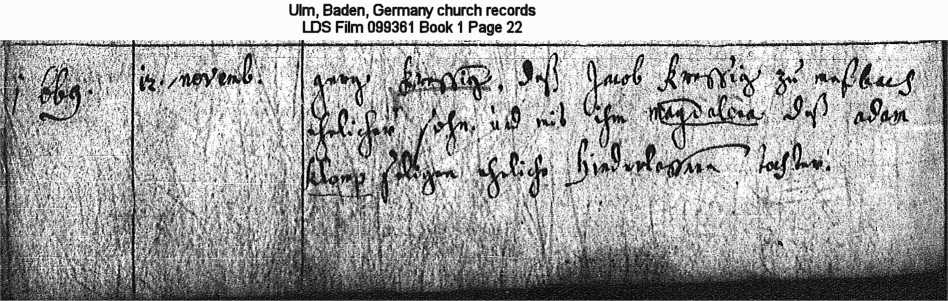 Ulm, Baden, Germany church records
LDS Film 099361 Book 1 Page 22
1669. 12. novemb. georg Kressig, deß Jacob Kressig zu
ehelicher sohn, und mit ihm Magdalena deß adam
seligen eheliche hinderlassene tochter.